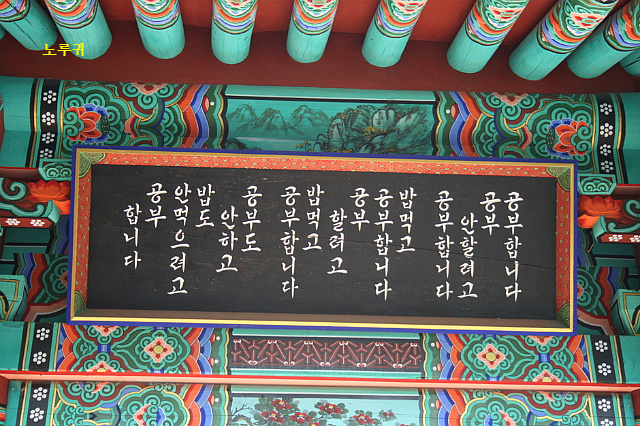 노루귀
공부합니다
공부
안할려고
공부합니다
밥먹고
공부합니다
공부
할려고
밥먹고
공부합니다
공부도
안하고
밥도
안먹으려고
공부
합니다